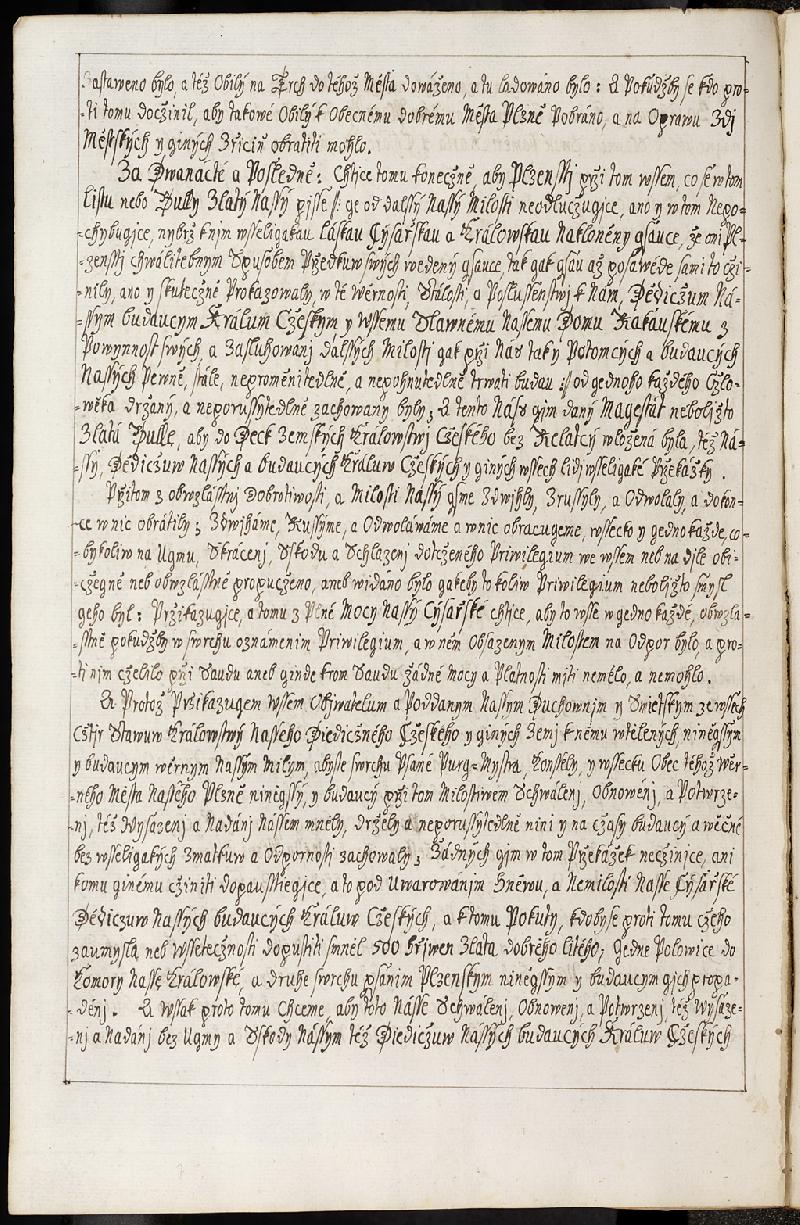 Zastaweno bylo, a též Obilý na Trch do téhož Města dowáženo, a tu ladowáno bylo: A Pokudžby se kdo pro-
ti tomu dočžinil, aby takowé Obilý k Obecnému dobrému Města Plzně Pobráno, a na Oprawu Zdj
Městských y giných Zřicin obratiti mohlo.
Za Dwanácté a Posledně: Chtice tomu konečzně, aby Plzensstj przi tom wssem, co se w tom
listu nebo Bully Zlatý Nassý pjsse /: ge od dalssý Nassý Milosti neodlučzugjce, ano y w tom Nepo-
-chybugjce, nybrž k nim wsseligakau láskau Cýsařskau a Královskau Nakloněny gsauce, že oni Pl-
-zensstj chwálitebnym Spusobem Przedkuw swých wedený gsauce, tak gak gsau až posawade sami to czi-
-nily, ano y skutečzné Prokazowaly, w té wěrnosti, Stálosti, a Poslussenstwj k Nám, Dědiczum Ná-
-ssým budaucym Králum Czeským y wssemu Slawnému Nassemu Domu Rakauskému z
Powynnosti swých, a Zasluhowanj dalssých Milosti gak przi Nás taký Potomcých a budaucých
Nassých Pewné, stále, neproměnitedlné, a nepohnutedlné trwati budau :/ od gednoho každého Czlo-
-wěka držaný, a neporussytedlné zachowaný byly; A tento Náss gim daný Magestát neboližto
Zlatá Bulle, aby do Deck Zemských Královstwj Czeského bez Relatcý wložená byla, též Ná-
-ssý, Dědiczuw Nassých a budaucých Králuw Czeských y giných wssech lidj wsseligaké Przekážky.
Przitom z obwzlásstnj Dobrotiwosti, a Milosti Nássý gsme Zdwjhly, Zrussyly, a Odwolaly, a dokon-
-ce w nic obrátily; Zdwjháme, Russýme, a Odwoláwáme a w nic obracugeme, wssecko y gedno každe, co-
-bykoliw na Ugmu, Skráceni, Sskodu a Schlazenj dotčzeného Priwilegium we wssem neb na djle obi-
-czegně neb obwzlásstně propuczeno, aneb widáno bylo gakeby to koliw Priwilegium neboližto smysl
geho byl: Przikazugjce, a tomu z Plné Mocy Nassý Cýsařské chtice, aby to wsse w gedno každé, obwzla-
-sstně pokudžby w swrchu oznámenim Priwilegium, a w něm Obsazenym Milostem na Odpor bylo, a pro-
ti nim czelilo przi Saudu aneb ginde krom Saudu žádné Mocy a Platnosti miti nemělo, a nemohlo.
A Protož Przikazugem wssem Obywatelum a Poddanym Nassým Duchownjm y Swietským ze wssech
Cztir Stawuw Královstwý Nasseho Diedicžného Czeského y giných Zemj k němu wtělených, niněgssým
y budaucym wěrnym Nassým Milym, abyste swrchu Psané Purg-Mystra, Konssely, y wssecku Obec téhož Wěr-
-ného Města Nasseho Plzně ninegssý, y budaucý przi tom Milostiwem Schwálenj, Obnowenj, a Potwrze-
-nj, též Wysazenj a Nadánj Nássem mněly, držely a neporussytedlné nini y na czasy budaucý a wěčné
bez wsseligakých Zmatkuw a Odpornosti zachowaly; Žádných gim w tom Przekážek neczinice, ani
komu ginému cziniti dopausstiegjce, a to pod Uwarowánjm Hněwu, a Nemilosti Nasse Cýsařské
Dědiczuw Nassých budaucých Králuw Czeských, a k tomu Pokuty, kdoby se proti tomu czeho
zaumysla neb Wssetečznosti dopustiti smněl 500 hrjwen Zlata dobrého litého; gedne Polowice do
Komory Nasse Královské, a druhe swrchu psánim Plzenským ninégssým y budaucym gich propa-
-dénj. A wssak proto tomu Chceme, aby toto Násse Schwálenj, Obnowenj, a Potwrzenj, též Wysaze-
-nj a Nadánj bez Ugmy a Sskody Nássým též Diedičzuw Nassých budaucých Králuw Czeských